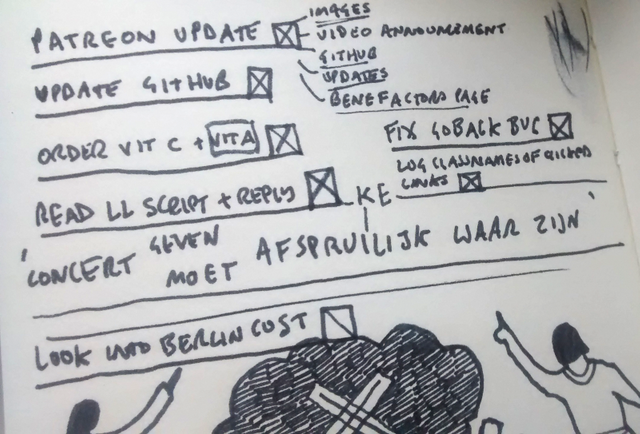 PATREON UPDATE
IMAGES
VIDEO ANNOUNCEMENT
GITHUB
UPDATES
BENEFACTORS PAGE
UPDATE GITHUB
ORDER VIT C + VIT A
FIX GOBACK BUG
LOG CLASSNAMES OF CLICKED
LINKS
READ LL SCRIPT + REPLY
KE
'CONCERT GEVEN
MOET AFSPRUILIJK WAAR ZIJN'
LOOK INTO BERLIN COST